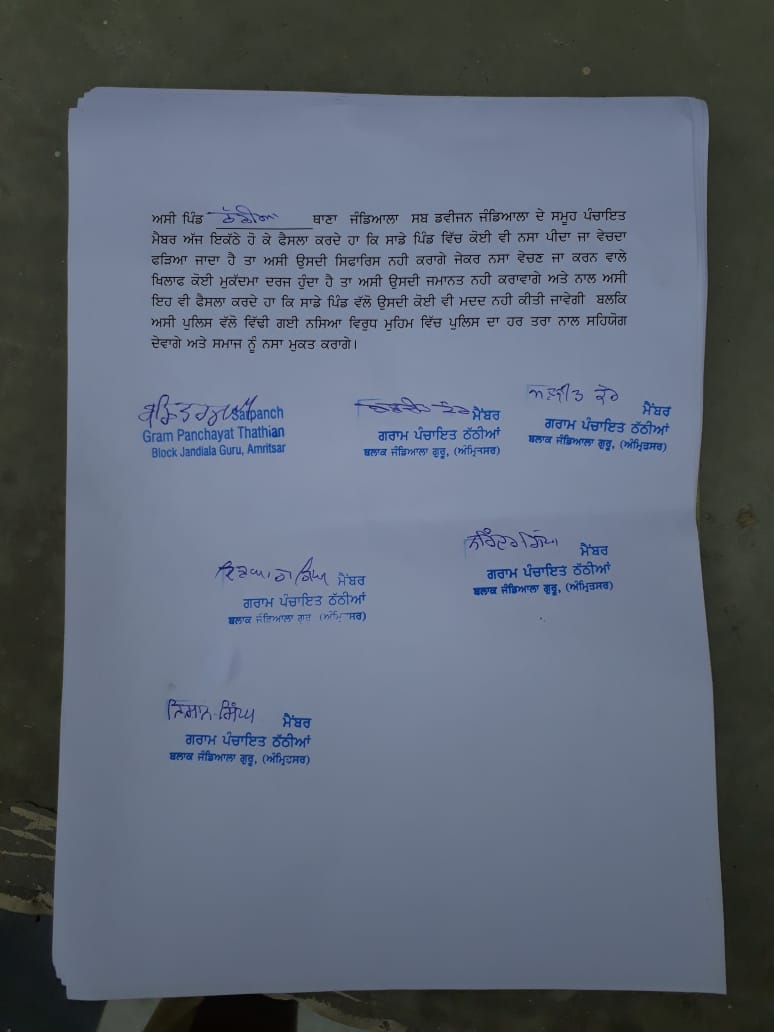 ਅਸੀ ਪਿੰਡ ਠੱਠੀਆ ਥਾਣਾ ਜੰਡਿਆਲਾ ਸਬ ਡਵੀਜਨ ਜੰਡਿਆਲਾ ਦੇ ਸਮੂਹ ਪੰਚਾਇਤ
ਮੈਬਰ ਅੱਜ ਇਕੱਠੇ ਹੋ ਕੇ ਫੈਸਲਾ ਕਰਦੇ ਹਾ ਕਿ ਸਾਡੇ ਪਿੰਡ ਵਿੱਚ ਕੋਈ ਵੀ ਨਸਾ ਪੀਦਾ ਜਾ ਵੇਚਦਾ
ਫੜਿਆ ਜਾਦਾ ਹੈ ਤਾ ਅਸੀ ਉਸਦੀ ਸਿਫਾਰਿਸ ਨਹੀ ਕਰਾਗੇ ਜੇਕਰ ਨਸਾ ਵੇਚਣ ਜਾ ਕਰਨ ਵਾਲੇ
ਖਿਲਾਫ ਕੋਈ ਮੁਕੱਦਮਾ ਦਰਜ ਹੁੰਦਾ ਹੈ ਤਾ ਅਸੀ ਉਸਦੀ ਜਮਾਨਤ ਨਹੀ ਕਰਾਵਾਗੇ ਅਤੇ ਨਾਲ ਅਸੀ
ਇਹ ਵੀ ਫੈਸਲਾ ਕਰਦੇ ਹਾ ਕਿ ਸਾਡੇ ਪਿੰਡ ਵੱਲੋ ਉਸਦੀ ਕੋਈ ਵੀ ਮਦਦ ਨਹੀ ਕੀਤੀ ਜਾਵੇਗੀ ਬਲਕਿ
ਅਸੀ ਪੁਲਿਸ ਵੱਲੋ ਵਿੱਢੀ ਗਈ ਨਸਿਆ ਵਿਰੁਧ ਮੁਹਿਮ ਵਿੱਚ ਪੁਲਿਸ ਦਾ ਹਰ ਤਰਾ ਨਾਲ ਸਹਿਯੋਗ
ਦੇਵਾਗੇ ਅਤੇ ਸਮਾਜ ਨੂੰ ਨਸਾ ਮੁਕਤ ਕਰਾਗੇ।
Sarpanch
Gram Panchayat Thathian
Block Jandiala Guru, Amritsar
ਮੈਂਬਰ
ਗਰਾਮ ਪੰਚਾਇਤ ਠੱਠੀਆਂ
ਬਲਾਕ ਜੰਡਿਆਲਾ ਗੁਰੂ, (ਅੰਮ੍ਰਿਤਸਰ)
ਕੌਰ
ਮੈਂਬਰ
ਗਰਾਮ ਪੰਚਾਇਤ ਠੱਠੀਆਂ
ਬਲਾਕ ਜੰਡਿਆਲਾ ਗੁਰੂ, (ਅੰਮ੍ਰਿਤਸਰ)
ਸਿੰਘ ਮੈਂਬਰ
ਗਰਾਮ ਪੰਚਾਇਤ ਠੱਠੀਆਂ
ਬਲਾਕ ਜੰਡਿਆਲਾ ਗੁਰੂ (ਅੰਮ੍ਰਿਤਸਰ)
ਸਿੰਘ
ਮੈਂਬਰ
ਗਰਾਮ ਪੰਚਾਇਤ ਠੱਠੀਆਂ
ਬਲਾਕ ਜੰਡਿਆਲਾ ਗੁਰੂ, (ਅੰਮ੍ਰਿਤਸਰ)
ਨਿਸ਼ਾਨ ਸਿੰਘ ਮੈਂਬਰ
ਗਰਾਮ ਪੰਚਾਇਤ ਠੱਠੀਆਂ
ਬਲਾਕ ਜੰਡਿਆਲਾ ਗੁਰੂ, (ਅੰਮ੍ਰਿਤਸਰ)